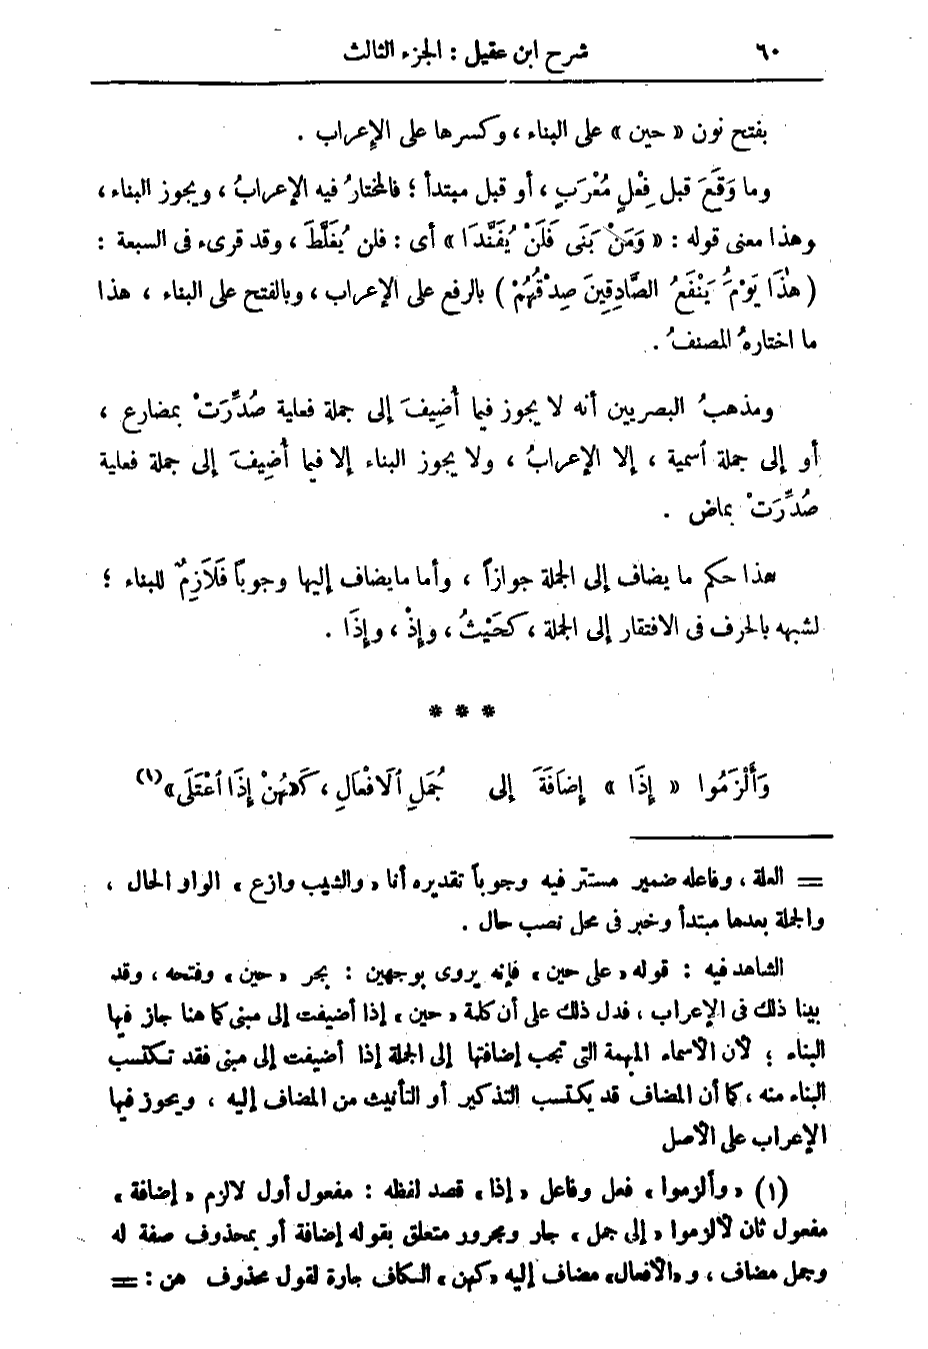 ٦٠ شرح ابن عقيل : الجزء الثالث
بفتح نون « حين » على البناء ، وكسرها على الإعراب .
وما وَقَعَ قبل فِعْلٍ مُعْرَبٍ ، أو قبل مبتدأ ؛ فالمختارُ فيه الإعرابُ ، ويجوز البناء ،
وهذا معنى قوله : « وَمَنْ بَنَى فَلَنْ يُفَنَّدَا » أى : فلن يُغَلَّطَ ، وقد قرىء فى السبعة :
( هٰذَا يَوْمُ يَنْفَعُ الصَّادِقِينَ صِدْقُهُمْ ) بالرفع على الإعراب ، وبالفتح على البناء ، هذا
ما اختارهُ المصنفُ .
ومذهبُ البصريين أنه لا يجوز فيما أُضِيفَ إلى جملة فعلية صُدِّرَتْ بمضارع ،
أو إلى جملة اسمية ، إلا الإعرابُ ، ولا يجوز البناء إلا فيما أُضِيفَ إلى جملة فعلية
صُدِّرَتْ بماض .
هذا حكم ما يضاف إلى الجملة جوازاً ، وأما ما يضاف إليها وجوباً فَلَازِمٌ للبناء ؛
لشبهه بالحرف فى الافتقار إلى الجملة ، كَحَيْثُ ، وإِذْ ، وإِذَا .
* * *
وَأَلْزَمُوا « إِذَا » إِضَافَةً إلى جُمَلِ الَافْعَالِ ، كَـ«ـهُنْ إِذَا اعْتَلَى» (١)
= العلة ، وفاعله ضمير مستتر فيه وجوباً تقديره أنا « والشيب وازع » الواو الحال ،
والجملة بعدها مبتدأ وخبر فى محل نصب حال .
الشاهد فيه : قوله « على حين » فإنه يروى بوجهين : بجر « حين » وفتحه ، وقد
بينا ذلك فى الإعراب ، فدل ذلك على أن كلمة « حين » إذا أضيفت إلى مبنى كما هنا جاز فيها
البناء ؛ لأن الأسماء المبهمة التى تجب إضافتها إلى الجملة إذا أضيفت إلى مبنى فقد تكتسب
البناء منه ، كما أن المضاف قد يكتسب التذكير أو التأنيث من المضاف إليه ، ويجوز فيها
الإعراب على الأصل
(١) « وألزموا » فعل وفاعل « إذا » قصد لفظه : مفعول أول لالزم « إضافة »
مفعول ثان لألزموا « إلى جمل » جار ومجرور متعلق بقوله إضافة أو بمحذوف صفة له
وجمل مضاف ، و « الأفعال » مضاف إليه « كهن » الكاف جارة لقول محذوف هن : =